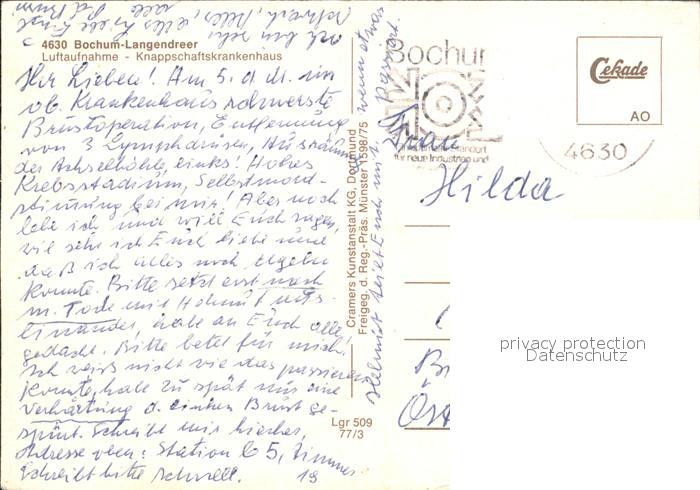 4630 Bochum-Langendreer
Luftaufnahme - Knappschaftskrankenhaus
Ihr Lieben! Am 5. d. M. im
ob. Krankenhaus schwerste
Brustoperation, Entfernung
von 3 Lymphdrüsen, Ausräum
der Achselhöhle, links! Hohes
Krebsstadium, Selbstmord-
stimmung bei mir! Aber noch
lebe ich und will Euch sagen,
wie sehr ich Euch liebe und
daß ich alles noch regeln
konnte. Bitte setzt erst nach
m. Tode mit Helmut
einander, habe an Euch alle
gedacht. Bitte betet für mich,
Ich weiß nicht wie das passieren
konnte, habe zu spät nur eine
Verhärtung d. linken Brust ge-
spürt. Schreibt mir hierher,
Adresse oben: Station 5, Zimmer
Schreibt bitte schnell. 19
Cramers Kunstanstalt KG, Dortmund
Freigeg. d. Reg.-Präs. Münster 1598/75
Helmut teilt Euch mit wenn etwas
passiert.
Lgr 509
77/3
Bochum
für neue Industrien und
4630
Cekade
AO
Frau
Hilda
privacy protection
Datenschutz